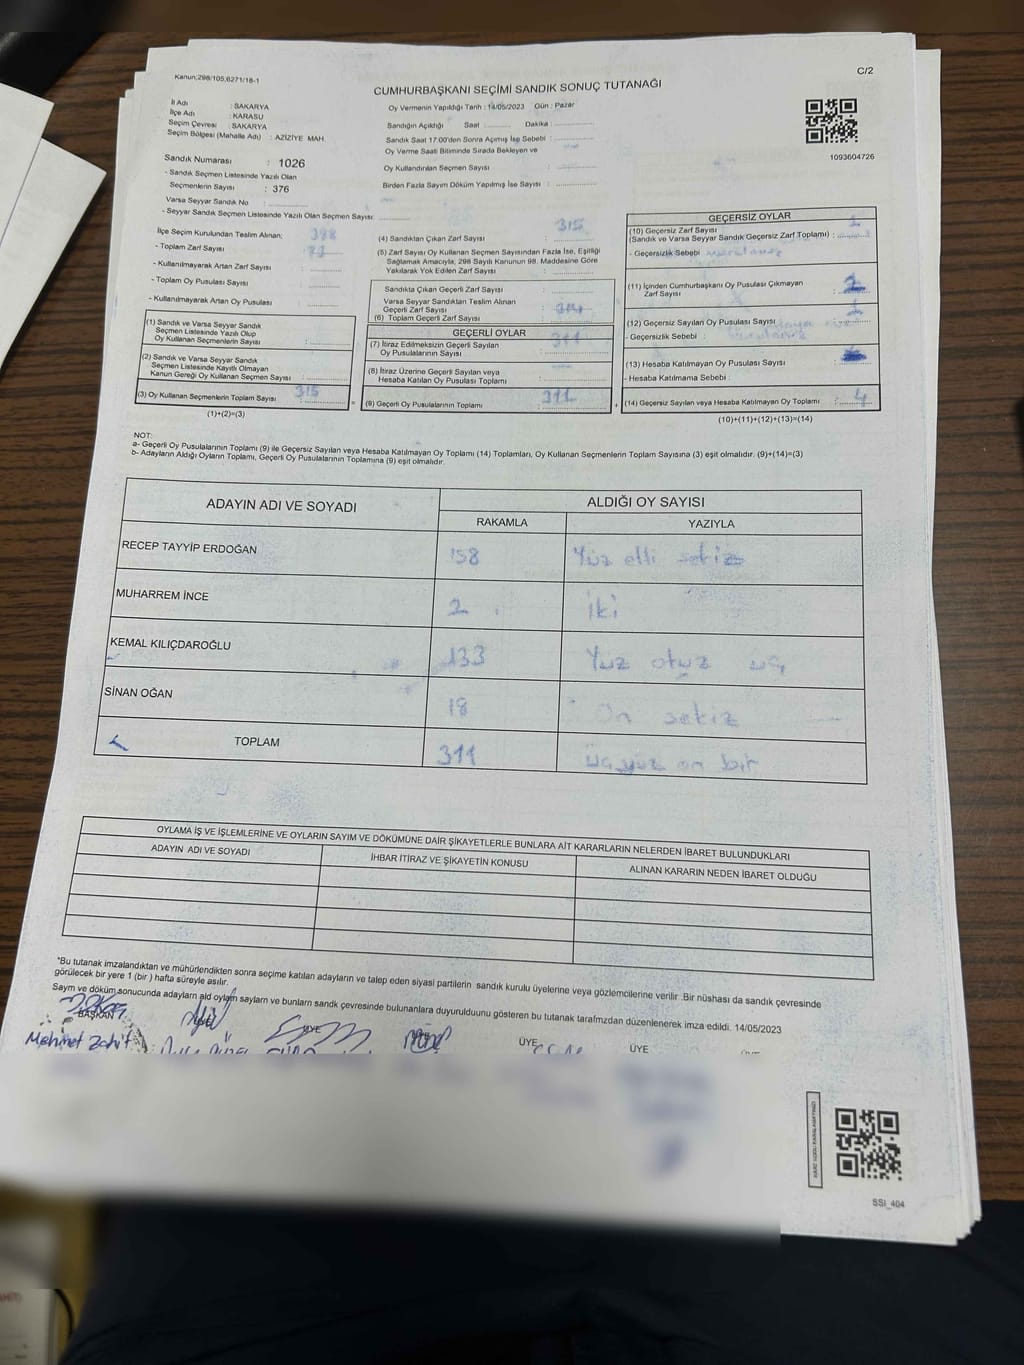 Kanun:298/105,6271/18-1
C/2
CUMHURBAŞKANI SEÇİMİ SANDIK SONUÇ TUTANAĞI
İl Adı : SAKARYA
İlçe Adı : KARASU
Seçim Çevresi : SAKARYA
Seçim Bölgesi (Mahalle Adı) : AZİZİYE MAH.
Sandık Numarası : 1026
- Sandık Seçmen Listesinde Yazılı Olan
Seçmenlerin Sayısı : 376
Varsa Seyyar Sandık No :
- Seyyar Sandık Seçmen Listesinde Yazılı Olan Seçmen Sayısı:
Oy Vermenin Yapıldığı Tarih : 14/05/2023 Gün : Pazar
Sandığın Açıldığı Saat : Dakika :
Sandık Saat 17:00'den Sonra Açımış İse Sebebi :
Oy Verme Saati Bitiminde Sırada Bekleyen ve
Oy Kullandırılan Seçmen Sayısı :
Birden Fazla Sayım Döküm Yapılmış İse Sayısı :
1093604726
İlçe Seçim Kurulundan Teslim Alınan;
- Toplam Zarf Sayısı :
- Kullanılmayarak Artan Zarf Sayısı :
- Toplam Oy Pusulası Sayısı :
- Kullanılmayarak Artan Oy Pusulası :
(1) Sandık ve Varsa Seyyar Sandık
Seçmen Listesinde Yazılı Olup
Oy Kullanan Seçmenlerin Sayısı :
(2) Sandık ve Varsa Seyyar Sandık
Seçmen Listesinde Kayıtlı Olmayan
Kanun Gereği Oy Kullanan Seçmen Sayısı :
(3) Oy Kullanan Seçmenlerin Toplam Sayısı : 315
(1)+(2)=(3)
(4) Sandıktan Çıkan Zarf Sayısı : 315
(5) Zarf Sayısı Oy Kullanan Seçmen Sayısından Fazla İse, Eşitliği
Sağlamak Amacıyla, 298 Sayılı Kanunun 98. Maddesine Göre
Yakılarak Yok Edilen Zarf Sayısı :
Sandıkta Çıkan Geçerli Zarf Sayısı :
Varsa Seyyar Sandıktan Teslim Alınan
Geçerli Zarf Sayısı :
(6) Toplam Geçerli Zarf Sayısı : 314
GEÇERLİ OYLAR
(7) İtiraz Edilmeksizin Geçerli Sayılan
Oy Pusulalarının Sayısı : 311
(8) İtiraz Üzerine Geçerli Sayılan veya
Hesaba Katılan Oy Pusulası Toplamı :
(9) Geçerli Oy Pusulalarının Toplamı : 311
GEÇERSİZ OYLAR
(10) Geçersiz Zarf Sayısı
(Sandık ve Varsa Seyyar Sandık Geçersiz Zarf Toplamı) : 1
- Geçersizlik Sebebi
(11) İçinden Cumhurbaşkanı Oy Pusulası Çıkmayan
Zarf Sayısı : 2
(12) Geçersiz Sayılan Oy Pusulası Sayısı : 1
- Geçersizlik Sebebi :
(13) Hesaba Katılmayan Oy Pusulası Sayısı :
- Hesaba Katılmama Sebebi :
(14) Geçersiz Sayılan veya Hesaba Katılmayan Oy Toplamı : 4
(10)+(11)+(12)+(13)=(14)
NOT:
a- Geçerli Oy Pusulalarının Toplamı (9) ile Geçersiz Sayılan veya Hesaba Katılmayan Oy Toplamı (14) Toplamları, Oy Kullanan Seçmenlerin Toplam Sayısına (3) eşit olmalıdır. (9)+(14)=(3)
b- Adayların Aldığı Oyların Toplamı, Geçerli Oy Pusulalarının Toplamına (9) eşit olmalıdır.
ADAYIN ADI VE SOYADI
ALDIĞI OY SAYISI
RAKAMLA YAZIYLA
RECEP TAYYİP ERDOĞAN 158 Yüz elli sekiz
MUHARREM İNCE 2 iki
KEMAL KILIÇDAROĞLU 133 Yuz otuz uç
SİNAN OĞAN 18 On sekiz
TOPLAM 311 üçyüz on bir
OYLAMA İŞ VE İŞLEMLERİNE VE OYLARIN SAYIM VE DÖKÜMÜNE DAİR ŞİKAYETLERLE BUNLARA AİT KARARLARIN NELERDEN İBARET BULUNDUKLARI
ADAYIN ADI VE SOYADI İHBAR İTİRAZ VE ŞİKAYETİN KONUSU ALINAN KARARIN NEDEN İBARET OLDUĞU
*Bu tutanak imzalandıktan ve mühürlendikten sonra seçime katılan adayların ve talep eden siyasi partilerin sandık kurulu üyelerine veya gözlemcilerine verilir .Bir nüshası da sandık çevresinde
görülecek bir yere 1 (bir ) hafta süreyle asılır.
Sayım ve döküm sonucunda adayların ald oylam saylarn ve bunların sandık çevresinde bulunanlara duyurulduunu gösteren bu tutanak tarafmzdan düzenlenerek imza edildi. 14/05/2023
BAŞKAN ÜYE ÜYE ÜYE
Mehmet Zahit
SSI_404